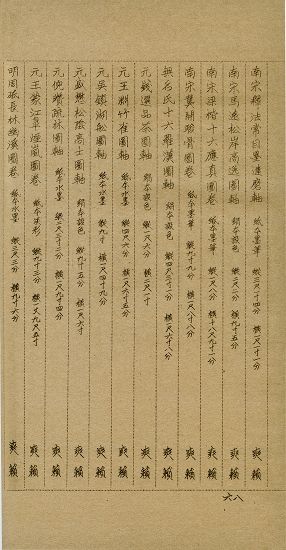 南宋釋法常目墨達磨軸 紙本墨筆 縱三尺一寸 橫一尺八寸一分 爽籟
南宋馬逵松岸高逸圖軸 絹本設色 縱二尺二寸 橫九寸五分 爽籟
南宋梁楷十六應真圖卷 紙本墨筆 縱八寸一分 橫十八尺九寸一分 爽籟
南宋龔開駿骨圖卷 紙本墨筆 縱九寸九分 橫一尺八寸八分 爽籟
無名氏十六羅漢圖軸 絹本設色 縱四尺三寸一分 橫一尺六寸八分 爽籟
元錢選品茶圖軸 絹本設色 縱二尺六分 橫二尺八寸 爽籟
元王淵竹雀圖軸 紙本水墨 縱四尺六分 橫一尺六寸五分 爽籟
元吳鎮湖船圖軸 紙本水墨 縱九寸 橫一尺四寸九分 爽籟
元盛懋松蔭高士圖軸 紙本設色 縱九寸五分 橫一尺六寸 爽籟
元倪瓚疏林圖軸 紙本水墨 縱二尺三寸三分 橫一尺九寸四分 爽籟
元王蒙江阜煙嵐圖卷 紙本淡彩 縱九寸三分 橫又九尺五寸 爽籟
明周砥長林幽溪圖卷 紙本水墨 縱三尺三分 橫九寸六分 爽籟
六八